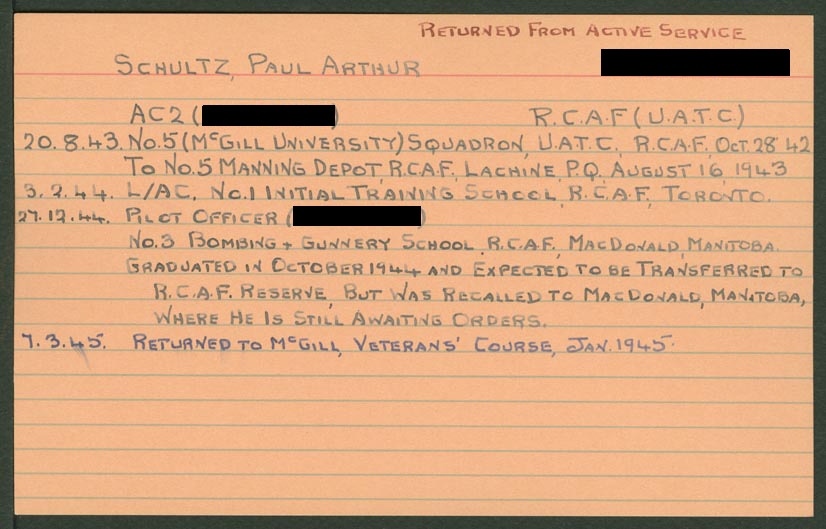 RETURNED FROM ACTIVE SERVICE
SCHULTZ, PAUL ARTHUR
AC2 ( ) R.C.A.F (U.A.T.C.)
20.8.43. No.5 (McGILL UNIVERSITY) SQUADRON, U.A.T.C., R.C.A.F., OCT. 28 '42
TO No.5 MANNING DEPOT, R.C.A.F., LACHINE, P.Q. AUGUST 16, 1943
3.2.44. L/AC. No.1 INITIAL TRAINING SCHOOL, R.C.A.F., TORONTO.
27.12.44. PILOT OFFICER ( )
No.3 BOMBING + GUNNERY SCHOOL, R.C.A.F., MACDONALD, MANITOBA.
GRADUATED IN OCTOBER 1944 AND EXPECTED TO BE TRANSFERRED TO
R.C.A.F. RESERVE, BUT WAS RECALLED TO MACDONALD, MANITOBA,
WHERE HE IS STILL AWAITING ORDERS.
7.3.45. RETURNED TO McGILL, VETERANS' COURSE, JAN. 1945.